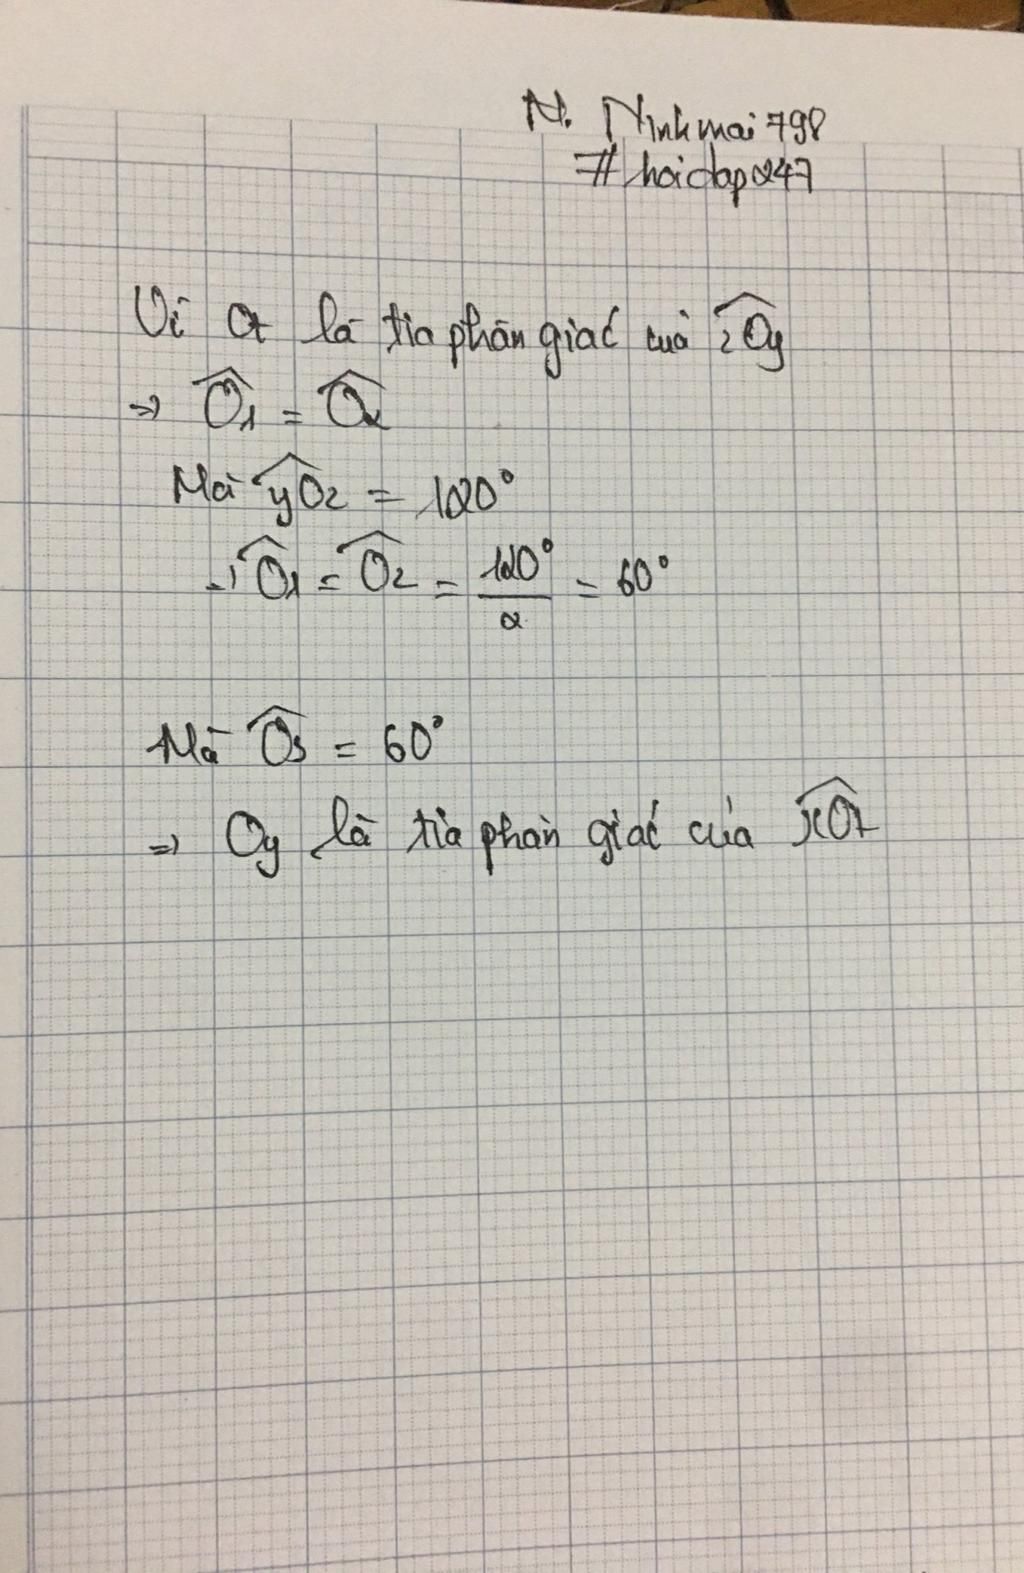 N. Ninhmai798
# hoidap247
Vì Ot là tia phân giác của zOy
=> Ô1 = Ô2
Mà yOz = 120°
=> Ô1 = Ô2 = 120°/2 = 60°
Mà Ô3 = 60°
=> Oy là tia phân giác của xOt